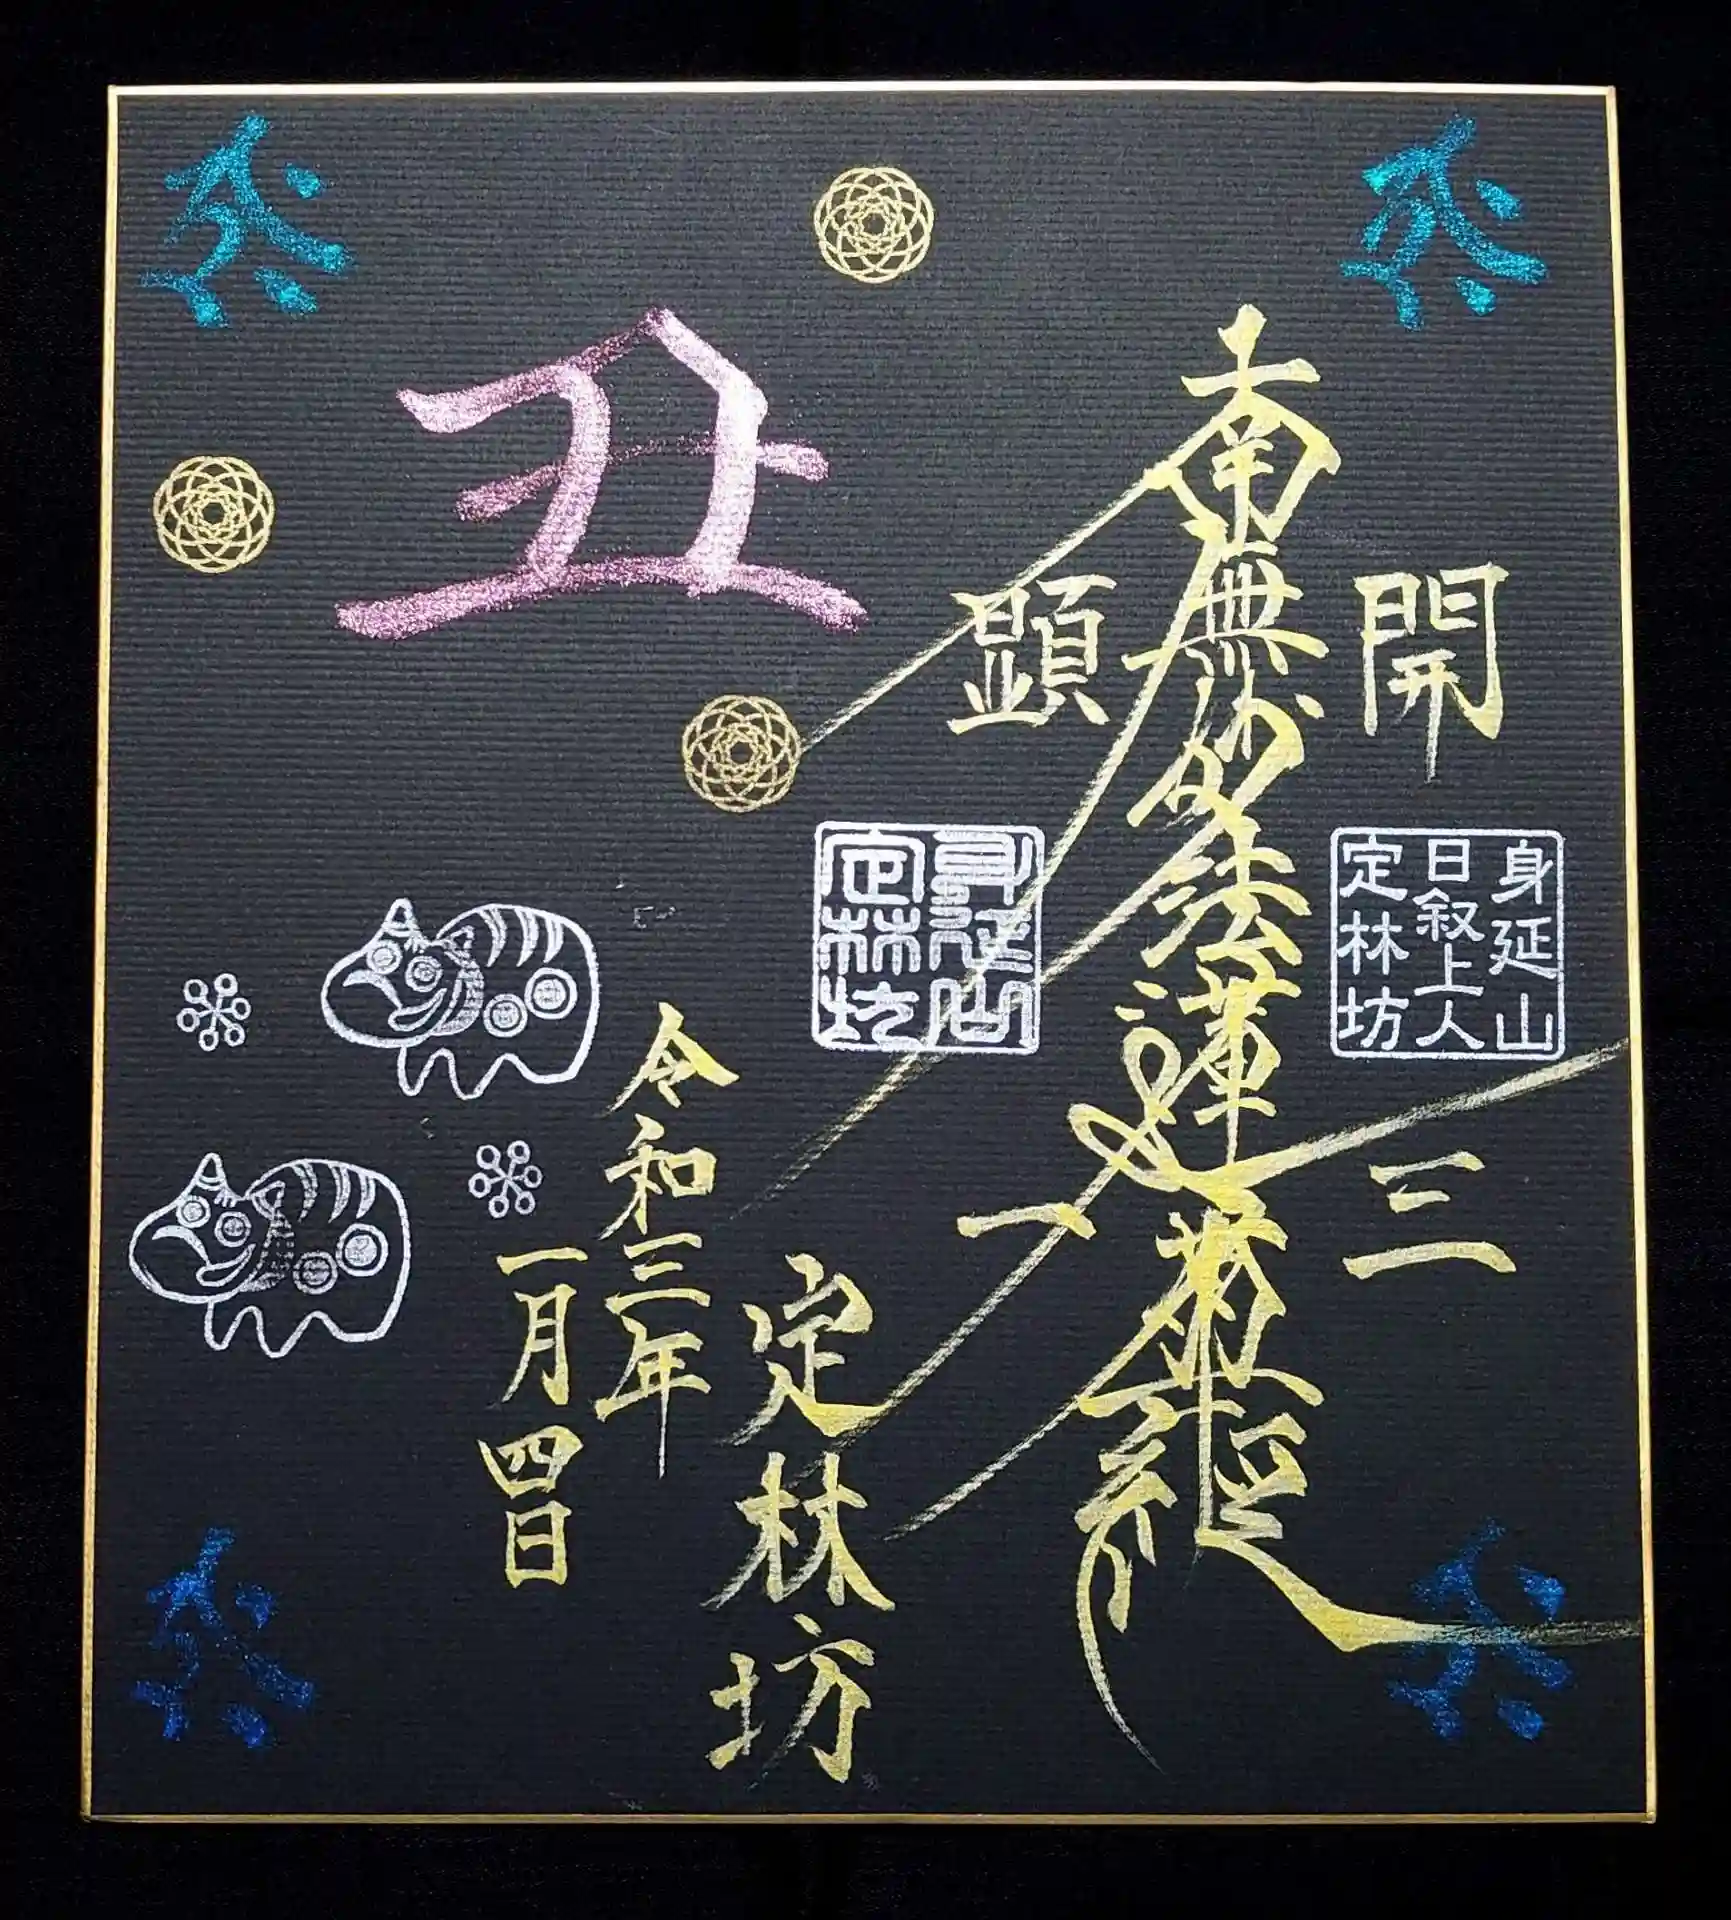 開
三
身延山
日叙上人
定林坊
南無妙法蓮華経
顕
一
身延山
定林坊
丑
定林坊
令和三年
一月四日